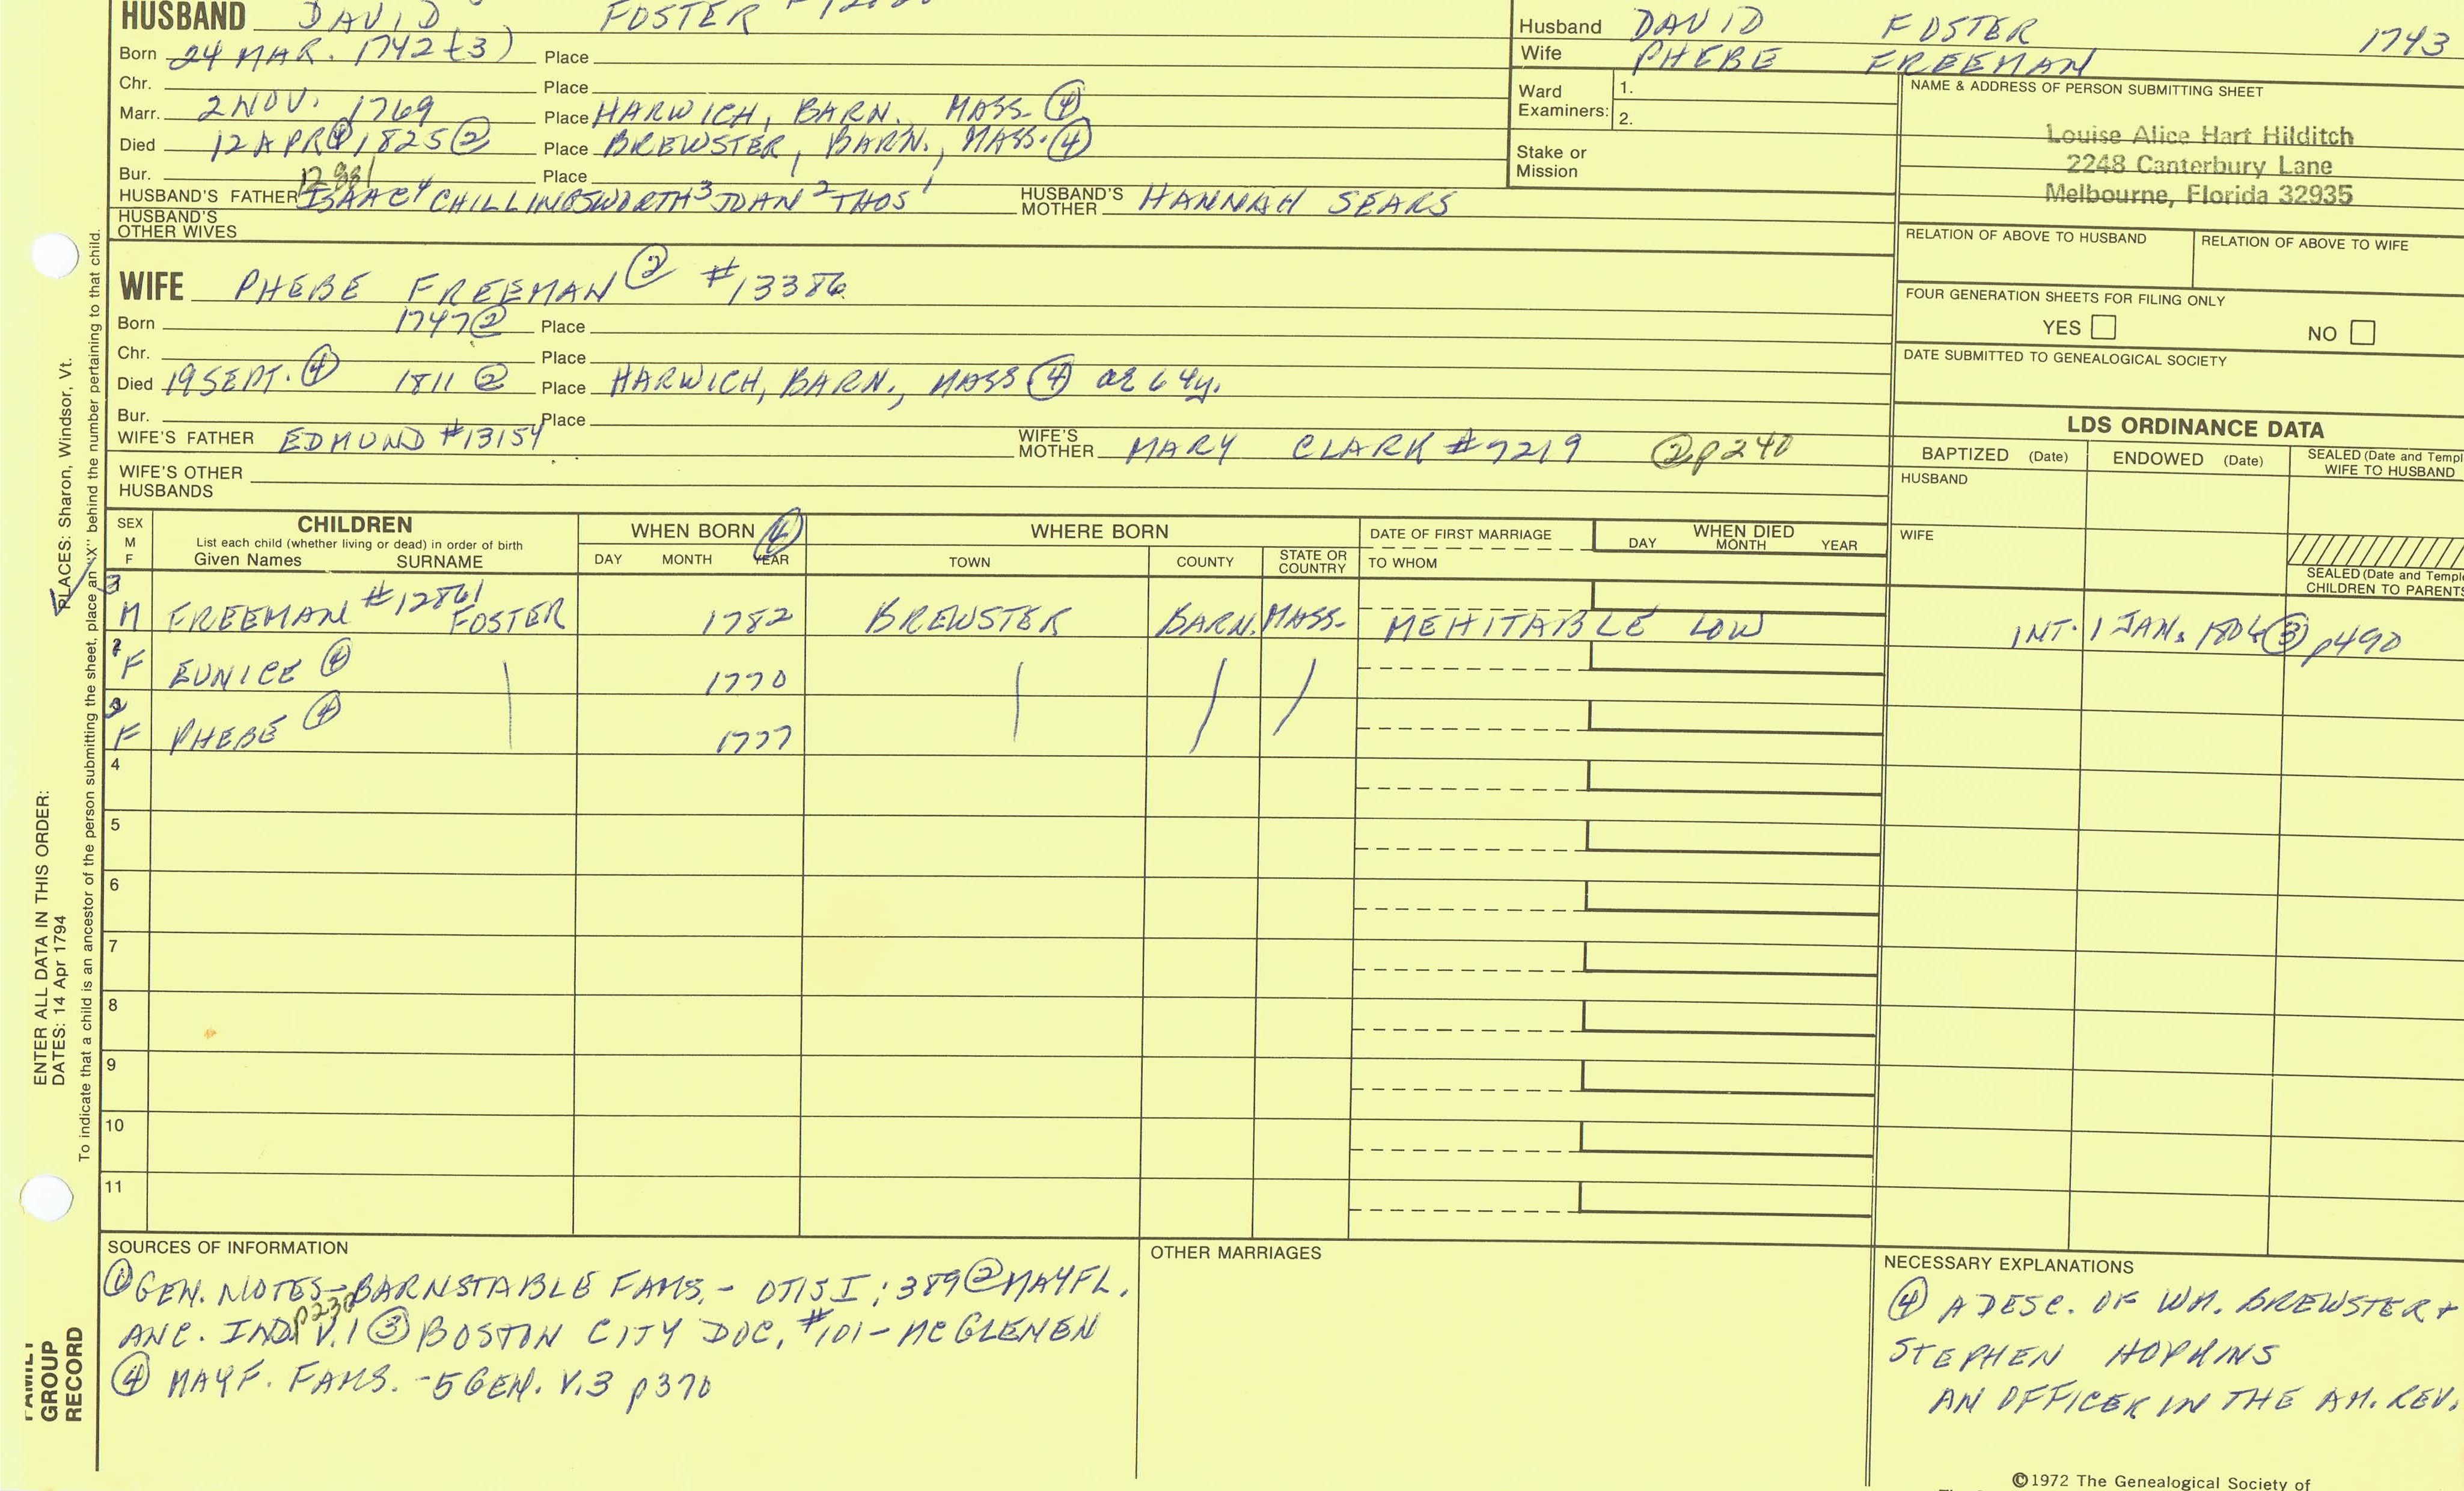 HUSBAND DAVID FOSTER
Born 24 MAR. 1742(3) Place
Chr. Place
Marr. 2 NOV. 1769 Place HARWICH, BARN. MASS. ④
Died 12 APR ④ 1825 ② Place BREWSTER, BARN., MASS. ④
Bur. Place
HUSBAND'S FATHER ISAAC⁴ CHILLINGSWORTH³ JOHN² THOS¹ HUSBAND'S MOTHER HANNAH SEARS
HUSBAND'S OTHER WIVES
Husband DAVID FOSTER 1743
Wife PHEBE FREEMAN
Ward Examiners: 1.
2.
Stake or Mission
NAME & ADDRESS OF PERSON SUBMITTING SHEET
Louise Alice Hart Hilditch
2248 Canterbury Lane
Melbourne, Florida 32935
RELATION OF ABOVE TO HUSBAND RELATION OF ABOVE TO WIFE
FOUR GENERATION SHEETS FOR FILING ONLY
YES NO
DATE SUBMITTED TO GENEALOGICAL SOCIETY
WIFE PHEBE FREEMAN ② #13386
Born 1747 ② Place
Chr. Place
Died 19 SEPT. ④ 1811 ② Place HARWICH, BARN., MASS ④ ae 64y.
Bur. Place
WIFE'S FATHER EDMUND #13154 WIFE'S MOTHER MARY CLARK #7219 ② p240
WIFE'S OTHER HUSBANDS
LDS ORDINANCE DATA
BAPTIZED (Date) ENDOWED (Date) SEALED (Date and Templ
WIFE TO HUSBAND
HUSBAND
WIFE
SEALED (Date and Temple
CHILDREN TO PARENTS
SEX M F
CHILDREN
List each child (whether living or dead) in order of birth
Given Names SURNAME
WHEN BORN ④
DAY MONTH YEAR
WHERE BORN
TOWN COUNTY STATE OR COUNTRY
DATE OF FIRST MARRIAGE
TO WHOM
WHEN DIED
DAY MONTH YEAR
3 M FREEMAN #12861 FOSTER 1782 BREWSTER BARN. MASS. MEHITABLE LOW INT. 1 JAN. 1806 ③ p490
F EUNICE ④ 1770
F PHEBE ④ 1777
4
5
6
7
8
9
10
11
SOURCES OF INFORMATION
① GEN. NOTES - BARNSTABLE FAMS. - OTIS I; 389 ② MAYFL.
ANC. IND. V.1 p230 ③ BOSTON CITY DOC. #101 - MCGLENEN
④ MAYF. FAMS. - 5 GEN. V.3 p370
OTHER MARRIAGES
NECESSARY EXPLANATIONS
④ A DESC. OF WM. BREWSTER +
STEPHEN HOPKINS
AN OFFICER IN THE AM. REV.
©1972 The Genealogical Society of
ENTER ALL DATA IN THIS ORDER:
DATES: 14 Apr 1794
PLACES: Sharon, Windsor, Vt.
To indicate that a child is an ancestor of the person submitting the sheet, place an "X" behind the number pertaining to that child.
FAMILY
GROUP
RECORD